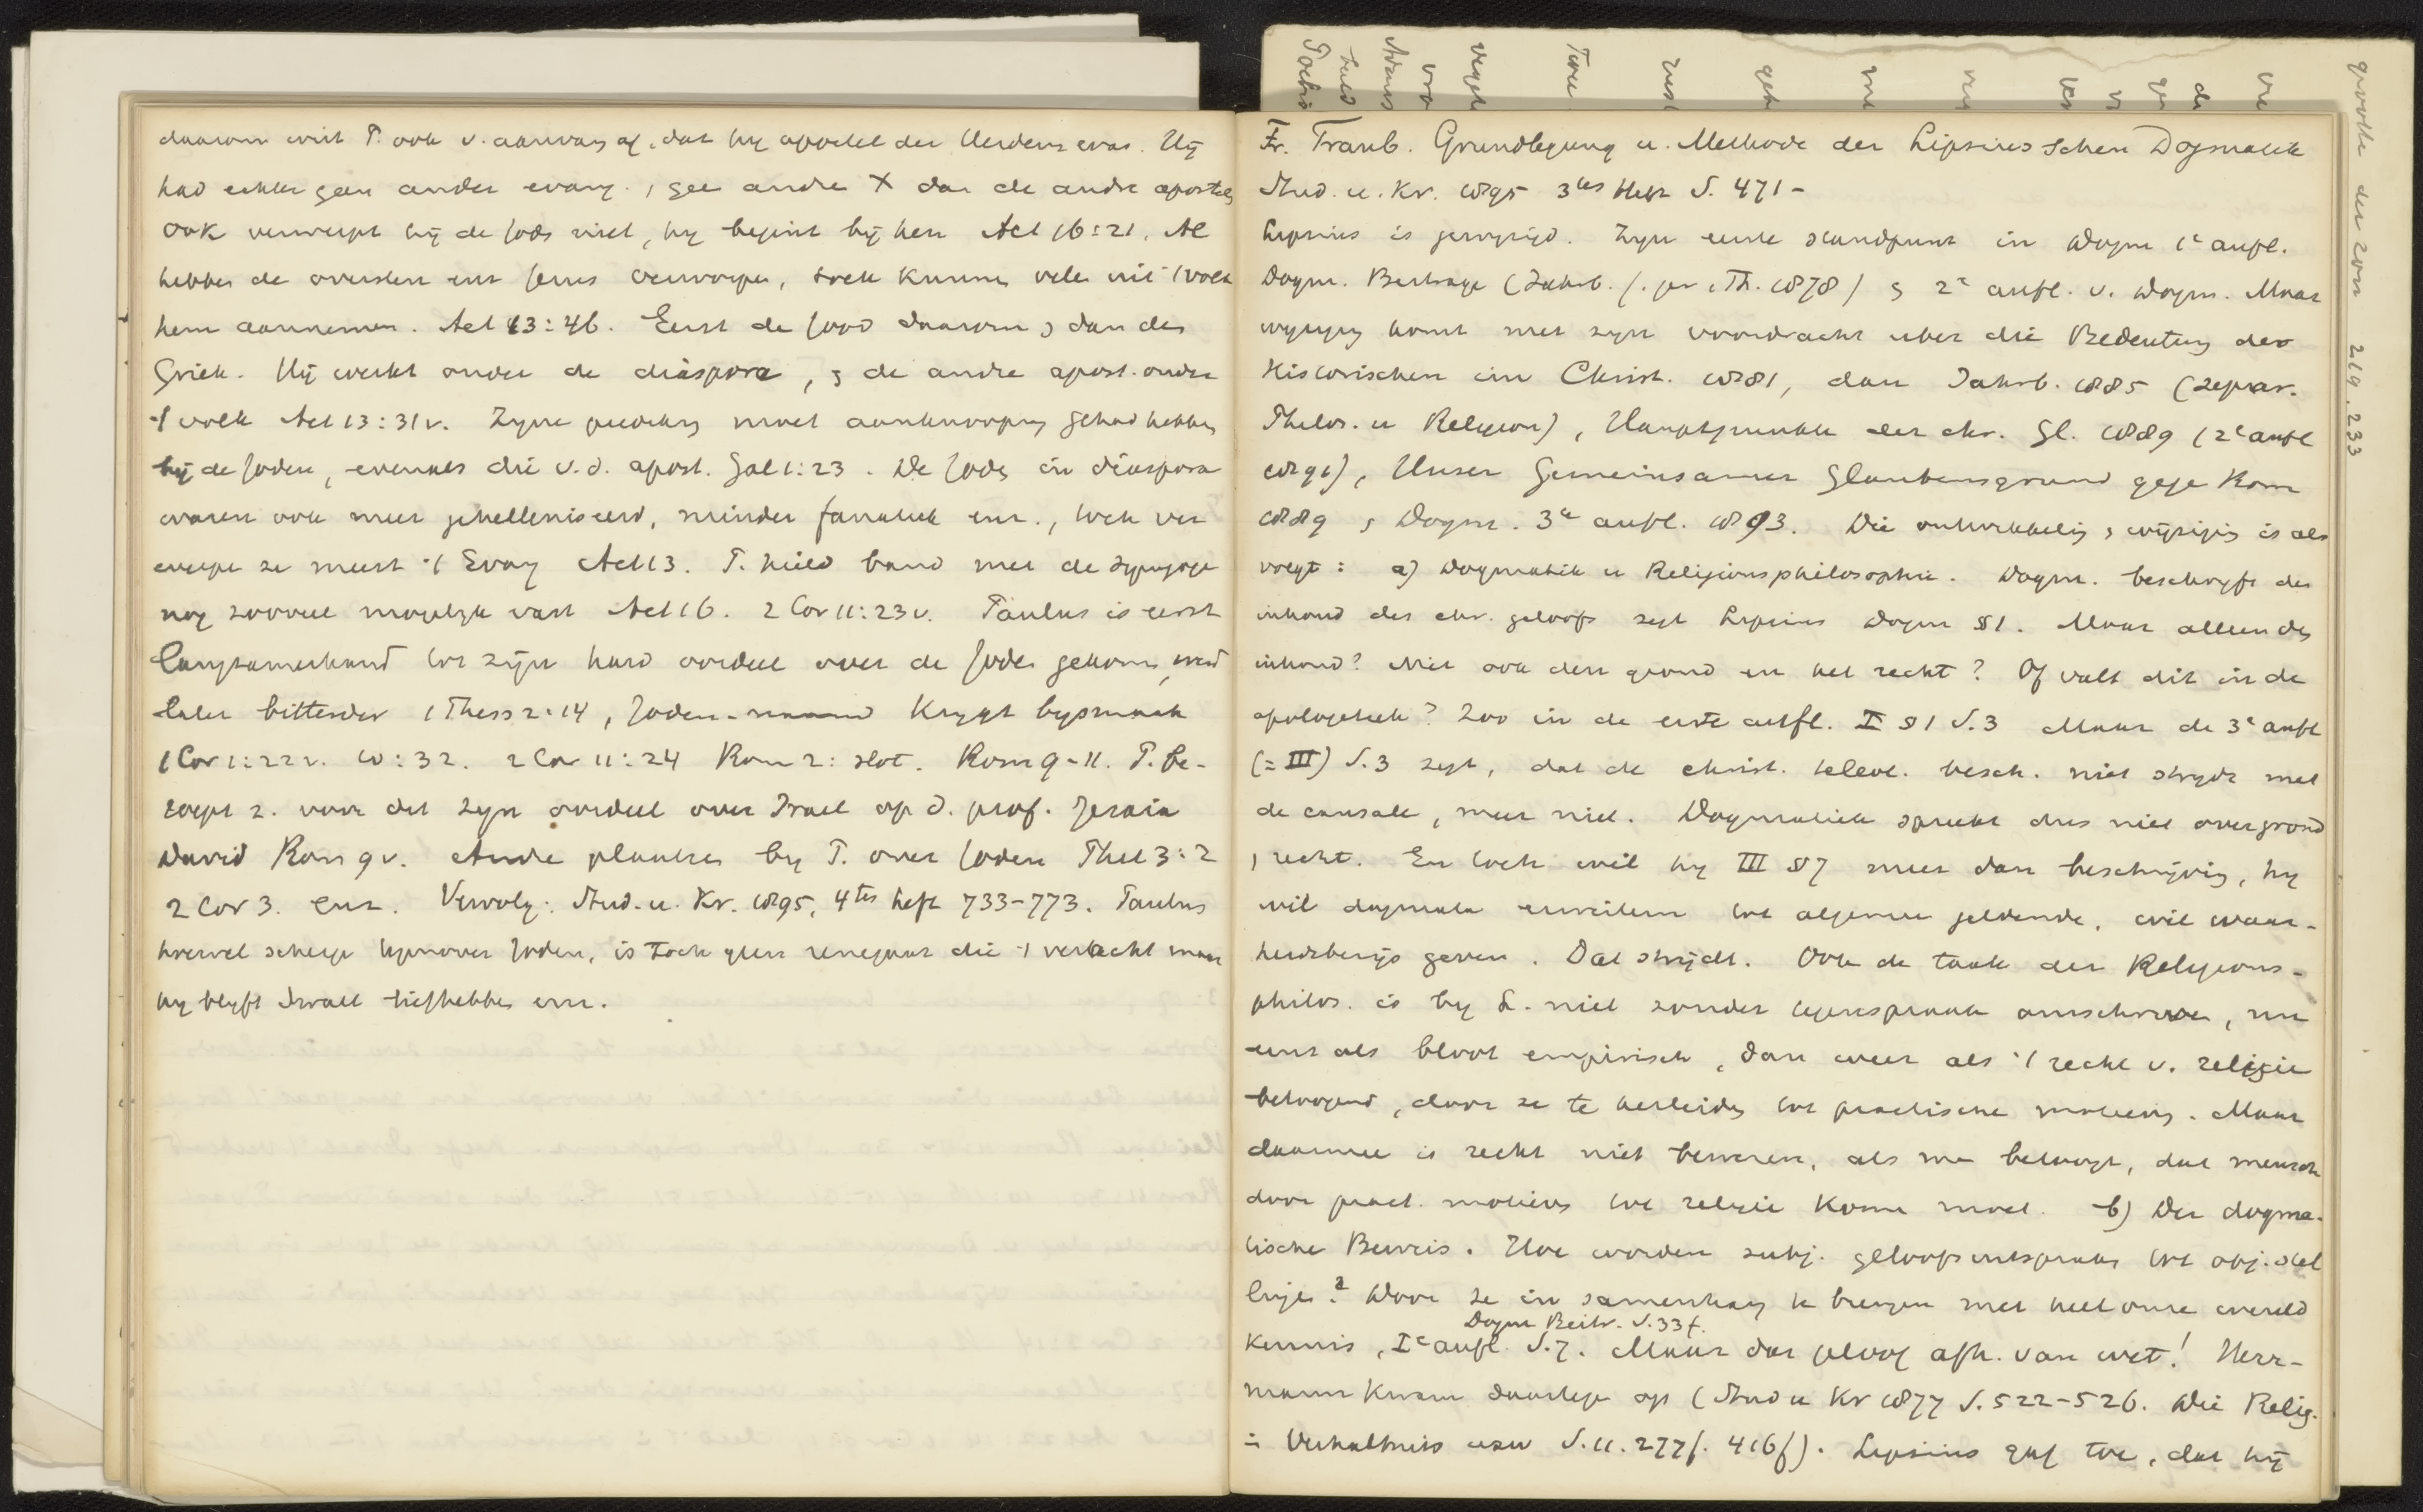 daarom wist P. ook v. aanvang af, dat hy apostel der Heidenen was. Hij
had echter geen ander evang., gee andre X dan de andre apostels
Ook verwerpt hij de Jods niet, hy begint bij hen Act 16:21. Al
hebben de oversten enz Jesus verworpen, toch kunnen vele uit 't volk
hem aannemen. Act 13:46. Eerst de Jood daarom, dan de
Griek. Hij werkt onder de diaspora, en de andre apost. onder
't volk Act 13:31v. Zyne prediking moet aanknooping gehad hebben
bij de Joden, evenals die v.d. apost. Gal 1:23. De Joden in diaspora
waren ook meer gehelleniseerd, minder fanatiek enz., toch ver
werpen ze meest 't Evang Act 13. P. hield band met de synagoge
nog zooveel mogelyk vast Act 16. 2 Cor 11:23v. Paulus is eerst
langzamerhand tot zijn hard oordeel over de Joden gekomen, werd
later bitterder 1 Thess 2:14, Joden-naam krygt bysmaak
1 Cor 1:22v. 10:32. 2 Cor 11:24 Rom 2: slot. Rom 9-11. P. be-
roept z. voor dit zyn oordeel over Israel op d. prof. Jesaia
David Rom 9v. Andre plaatsen by P. over Joden Phil 3:2
2 Cor 3. enz. Vervolg: Stud. u. Kr. 1895, 4tes heft 733-773. Paulus
hoewel scherp tegenover Joden, is toch geen renegaat die 't veracht maar
hy blyft Israel liefhebben enz.
Fr. Traub. Grundlegung u. Methode der Lipsiusschen Dogmatik
Stud. u. Kr. 1895 3tes Heft S. 471-
Lipsius is gewyzigd. Zyn eerste standpunt in Dogm 1e aufl.
Dogm. Beitrage (Jahrb. f. pr. Th. 1878) en 2e aufl. v. Dogm. Maar
wyziging komt met zyn voordracht uber die Bedeutung des
Historischen im Christ. 1881, dan Jahrb. 1885 (separ.
Philos. u Religion), Hauptpunkte der chr. Gl. 1889 (2e aufl
1891), Unser Gemeinsamer Glaubensgrund gege Rom
1889 en Dogm. 3e aufl. 1893. Die ontwikkeling en wijziging is als
volgt: a) Dogmatik u Religionsphilosophie. Dogm. beschryft den
inhoud des chr. geloofs zegt Lipsius Dogm §1. Maar alleen den
inhoud? Niet ook den grond en het recht? Of valt dit in de
apologetiek? Zoo in de erste aufl. I §1 S.3 Maar de 3e aufl
(=III) S.3 zegt, dat de christ. teleol. besch. niet strydt met
de causale, meer niet. Dogmatiek spreekt dus niet over grond
en recht. En toch wil hy III §7 meer dan beschrijving, hy
wil dogmata erweitern tot algemeen geldende, wil waar-
heidsbewijs geven. Dat strijdt. Ook de taak der Religions-
philos. is by L. niet zonder tegenspraak omschreven, nu
eens als bloot empirisch, dan weer als 't recht v. religie
betoogend, door ze te herleiden tot practische motieven. Maar
daarmee is recht niet bewezen, als men betoogt, dat mensch
door pract. motieven tot religie komen moet. b) Der dogma-
tische Beweis. Hoe worden subj. geloofsuitspraken tot obj. stel
lingen? Door ze in samenhang te brengen met heel onze wereld
Dogm Beitr. S.33f.
kennis, Ie aufl. S.7. Maar dan geloof afh. van wet! Herr-
mann kwam daartegen op (Stud u Kr 1877 S.522-526. Die Relig.
= Verhaltnis usw S.11.277f. 416f). Lipsius gaf toe, dat hij
Adams
Twee
de
219. 233